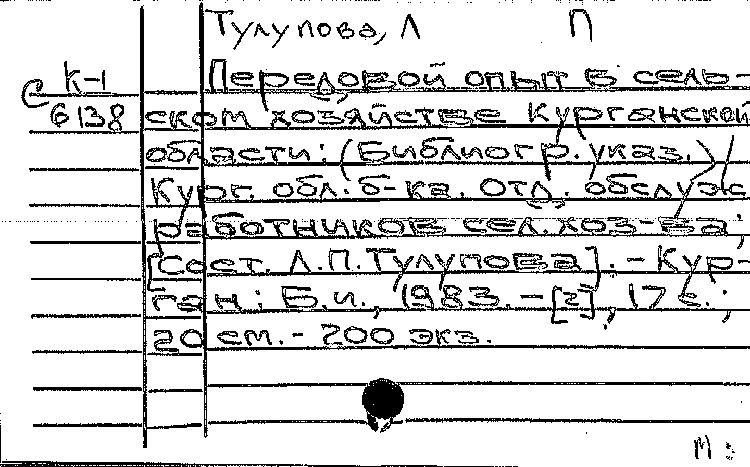 Тулупова, Л П
К-1 Передовой опыт в сель-
С 6138 ском хозяйстве Курганской
области: (Библиогр. указ.) /
Кург. обл. б-ка. Отд. обслуж
работников сел. хоз-ва;
[Сост. Л.П. Тулупова]. - Кур-
ган: Б.и., 1983. - [2], 17 с.;
20 см. - 200 экз.
М: